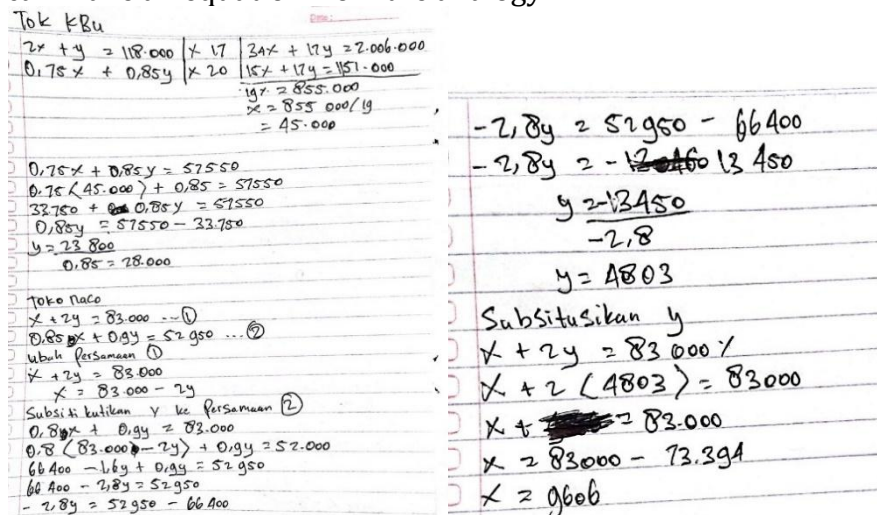 Tok KBu
2x + y = 118.000 | x 17 | 34x + 17y = 2.006.000
0,75x + 0,85y | x 20 | 15x + 17y = 1151.000
19x = 855.000
x = 855 000/19
= 45.000
0,75x + 0,85y = 57550
0.75 (45.000) + 0,85 = 57550
33.750 + 0,85y = 57550
0,85y = 57550 - 33.750
y = 23 800
0,85 = 28.000
Toko Maco
x + 2y = 83.000 ... ①
0.85 x + 0,9y = 52 950 ... ②
ubah Persamaan ①
x + 2y = 83.000
x = 83.000 - 2y
Subsiti kutikan y ke Persamaan ②
0,8x + 0,9y = 83.000
0.8 (83.000 - 2y) + 0,9y = 52.000
66 400 - 1,6y + 0,9y = 52950
66 400 - 2,8y = 52950
- 2,8y = 52950 - 66 400
-2,8y = 52950 - 66400
-2,8y = - 13 450
y = -13450
-2,8
y = 4803
Subsitusikan y
x + 2y = 83 000 %
x + 2 (4803) = 83000
x + = 83.000
x = 83000 - 73.394
x = 9606